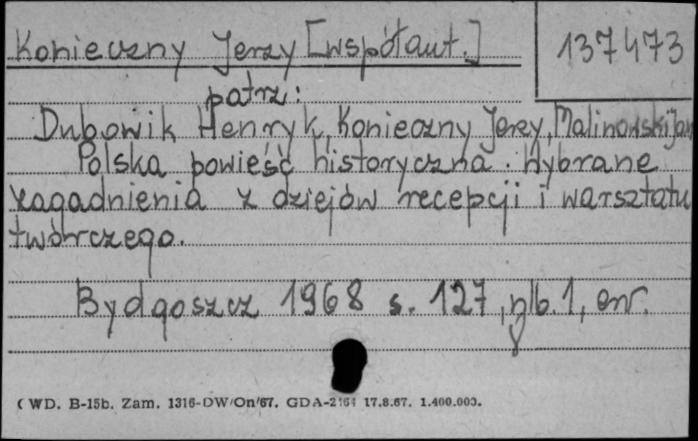 Konieczny Jerzy [współaut.] 137473
patrz:
Dubowik Henryk, Konieczny Jerzy, Malinowski Jan
Polska powieść historyczna. Wybrane
zagadnienia z dziejów recepcji i warsztatu
twórczego.
Bydgoszcz 1968 s. 127, nlb. 1, err.
(WD. B-15b. Zam. 1316-DW/On/67. GDA-2164 17.8.67. 1.400.000.